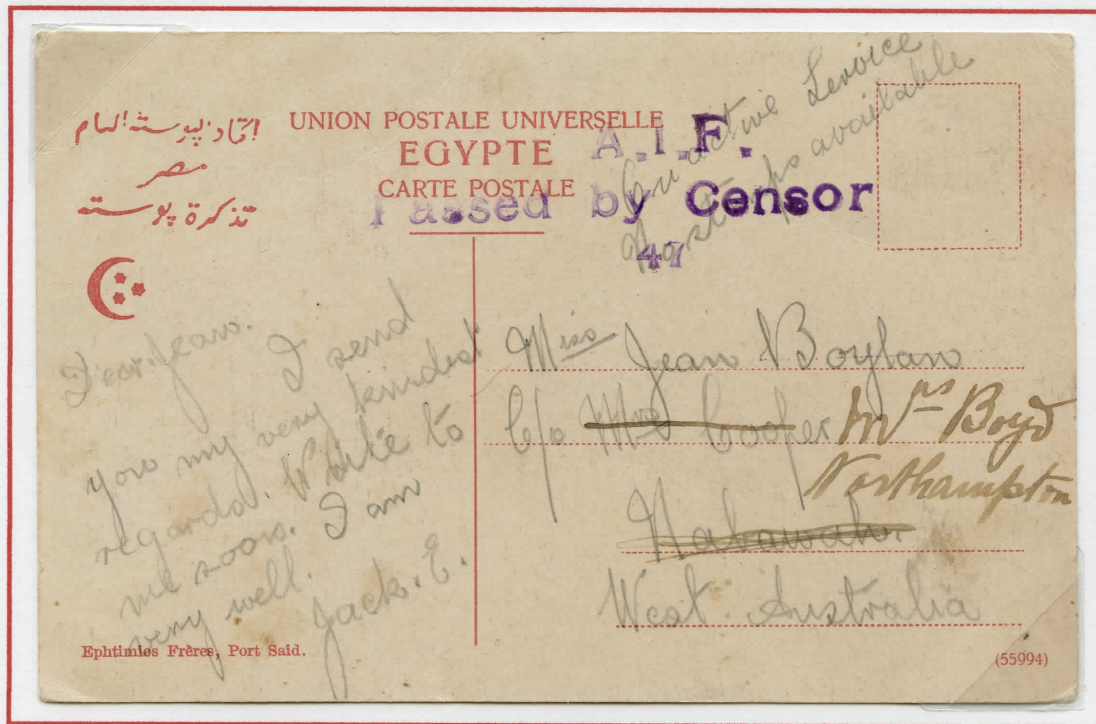 اتحاد پوسته العام
مصر
تذكرة پوسته
UNION POSTALE UNIVERSELLE
EGYPTE
CARTE POSTALE
A.I.F.
Passed by Censor
47
On active Service
No stamps available
Dear Jean.
I send
you my very kindest
regards. Write to
me soon. I am
very well.
Jack. E.
Miss Jean Boylan
C/o Mrs Cooper Mrs Boyd
Northampton
Nabawah.
West Australia
Ephtimios Frères, Port Said.
(55994)